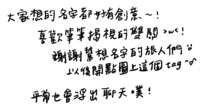 大家想的名字都好有創意~!
喜歡筆筆揭根的雙關>w<!
謝謝幫想名字的旅人們
以後開點圖上這個tag
平常也會浮出聊天噗!